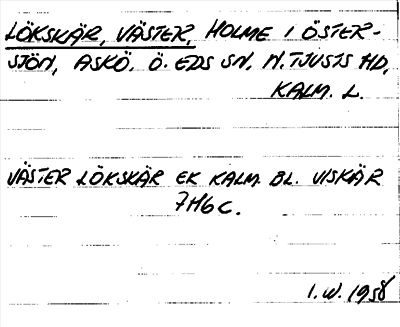 LÖKSKÄR, VÄSTER, HOLME I ÖSTER-
SJÖN, ASKÖ, Ö. EDS SN, N. TJUSTS HD,
KALM. L.
VÄSTER LÖKSKÄR EK KALM. BL. VISKÄR
7H6c.
I.W. 1958